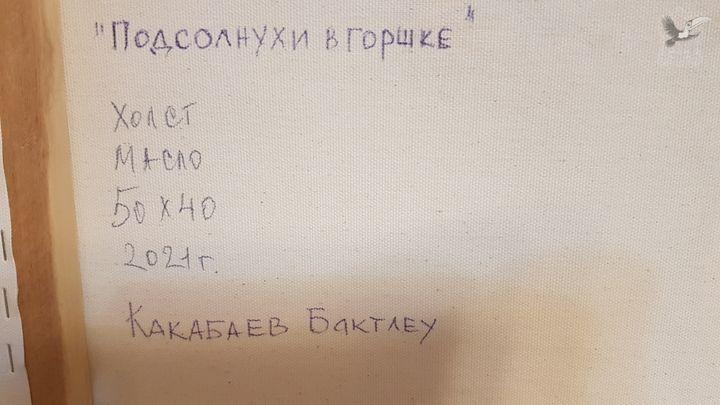 "Подсолнухи в горшке"
Холст
Масло
50 х 40
2021 г.
Какабаев Бактлеу